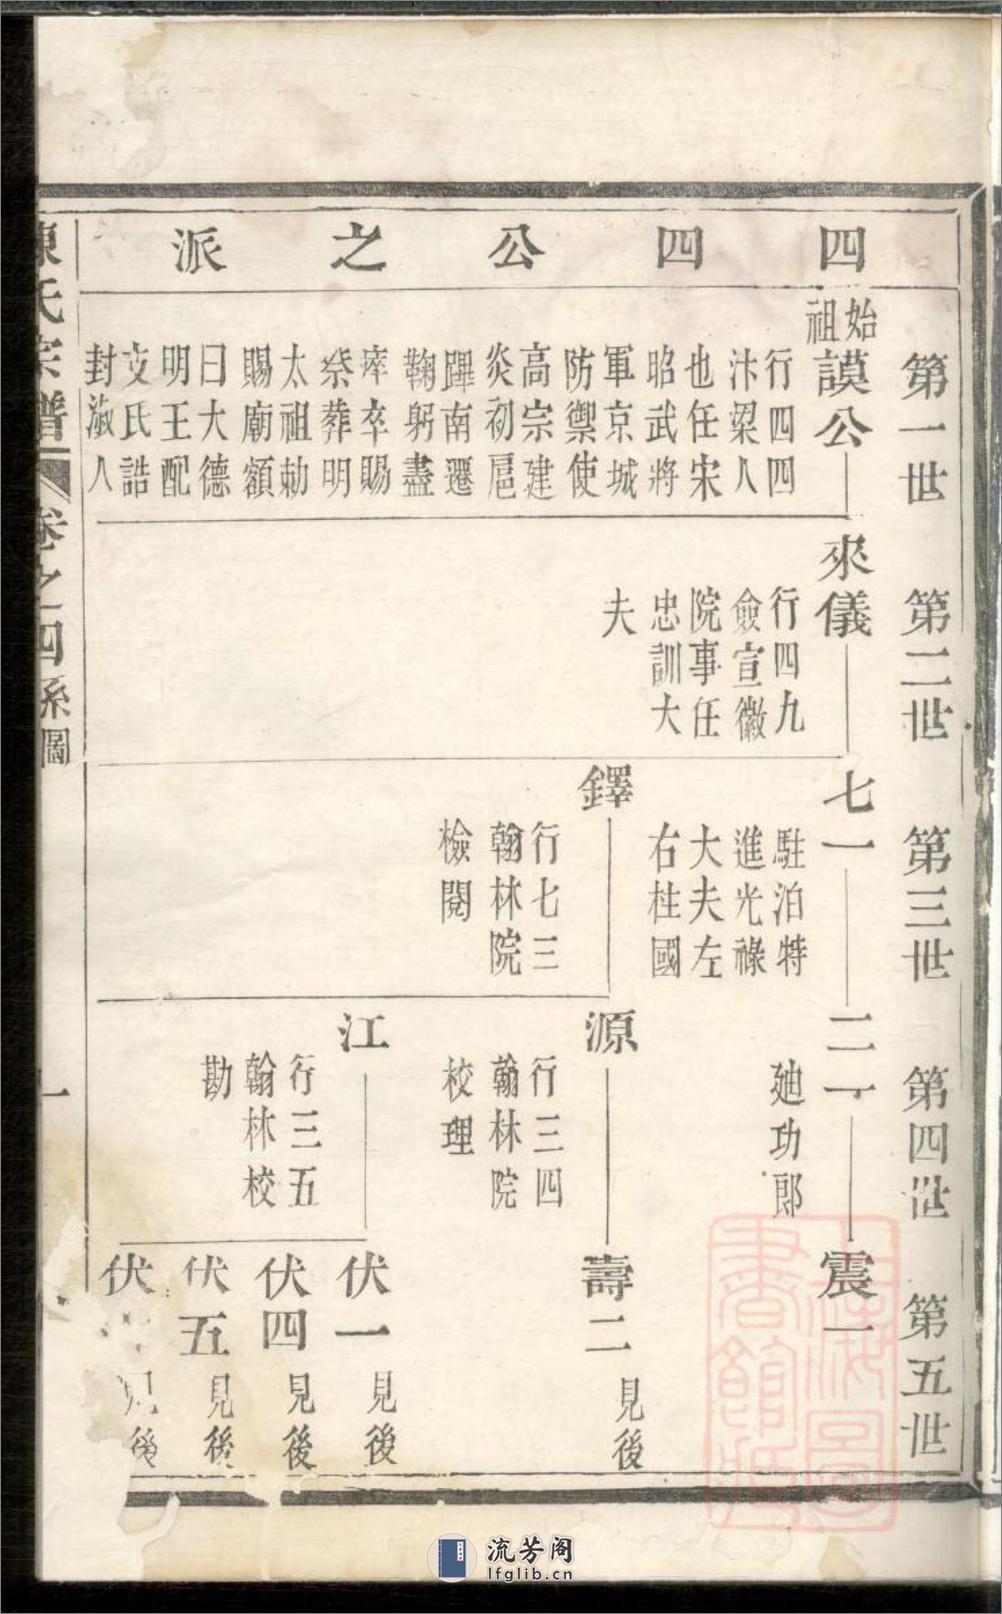 四四公之派
第一世
始祖
謨公
行四四
汴梁人
也任宋
昭武將
軍京城
防禦使
高宗建
炎初扈
蹕南遷
鞠躬盡
瘁卒賜
祭葬明
太祖勅
賜廟額
曰大德
明王配
支氏誥
封淑人
第二世
來儀
行四九
僉宣徽
院事任
忠訓大
夫
第三世
七一
駐泊特
進光祿
大夫左
右柱國
鐸
行七三
翰林院
檢閱
第四世
二一
廸功郎
源
行三四
翰林院
校理
江
行三五
翰林校
勘
第五世
震一
壽二
見後
伏一
見後
伏四
見後
伏五
見後
伏
見後
陳氏宗譜
卷之四系圖
一
流芳阁
lfglib.cn